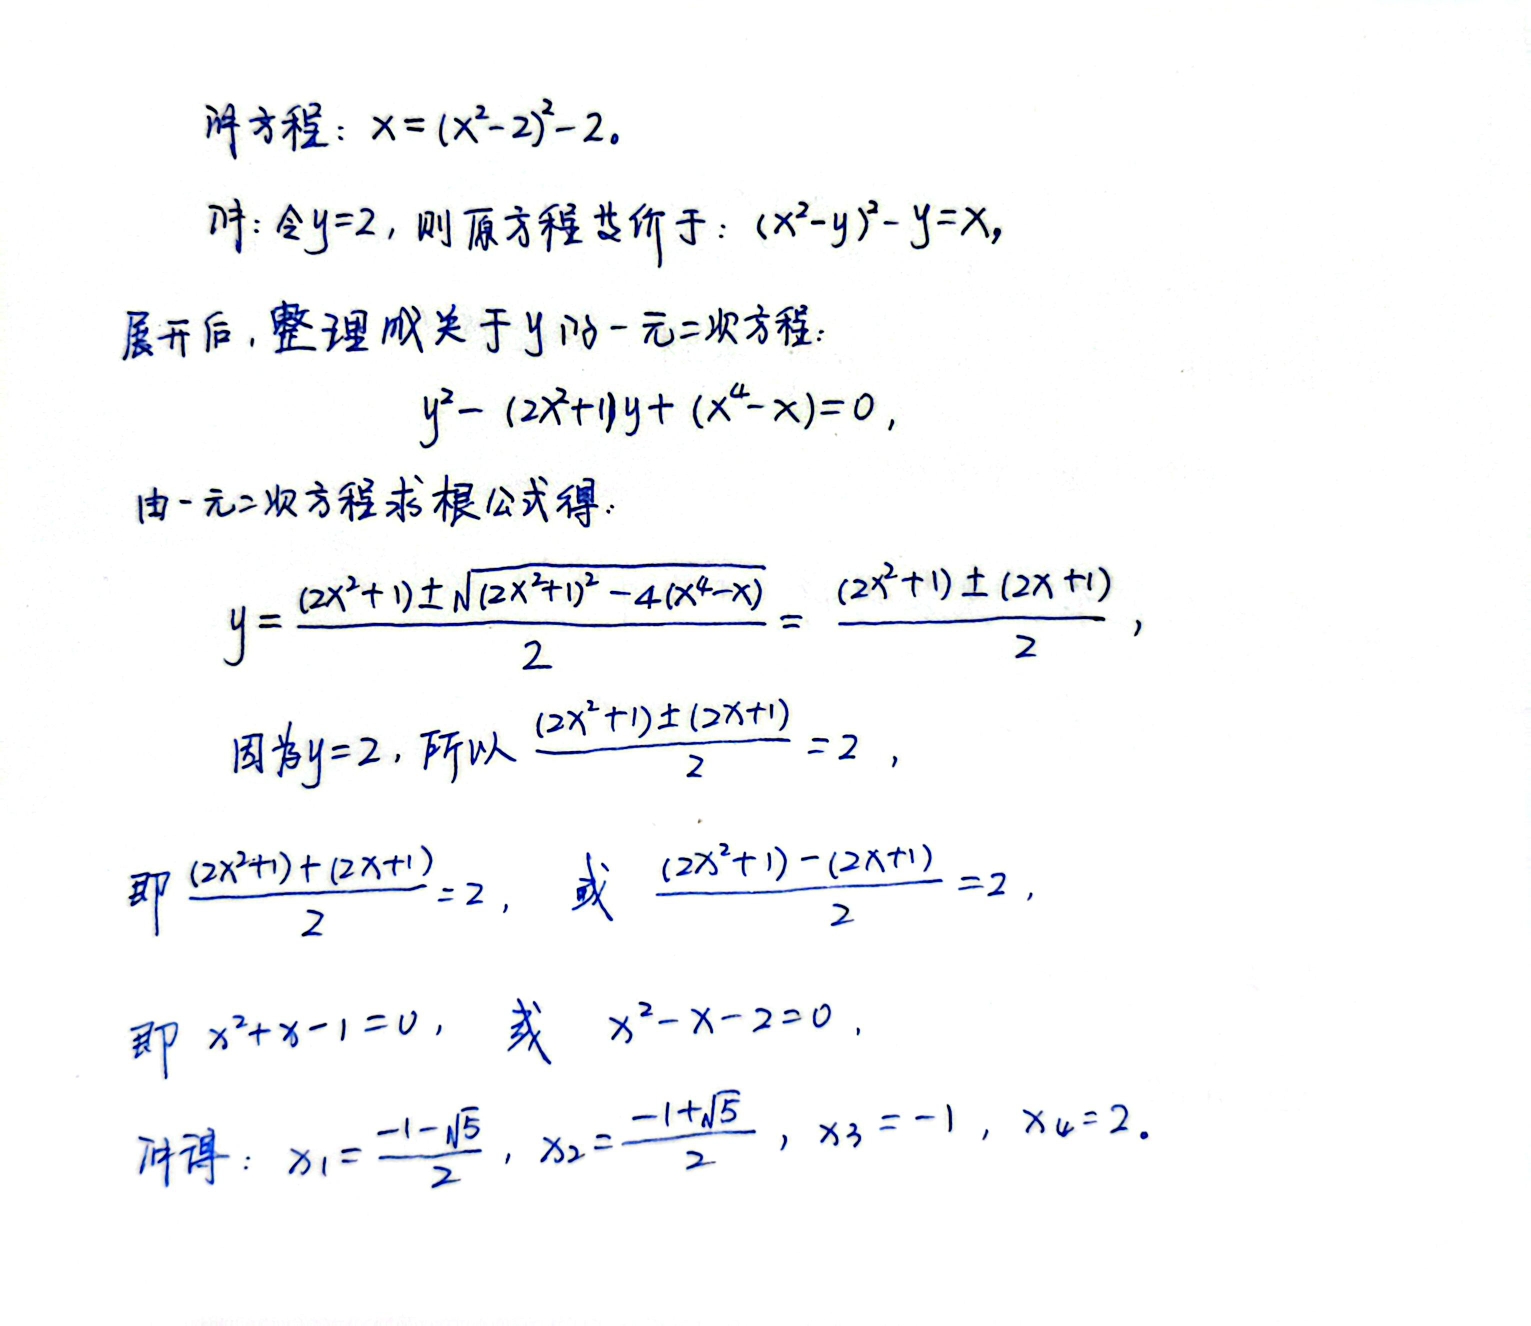 解方程：x=(x²-2)²-2。
解：令y=2，则原方程等价于：(x²-y)²-y=x，
展开后，整理成关于y的一元二次方程：
y²-(2x²+1)y+(x⁴-x)=0，
由一元二次方程求根公式得：
y=\frac{(2x²+1)±\sqrt{(2x²+1)²-4(x⁴-x)}}{2}=\frac{(2x²+1)±(2x+1)}{2}，
因为y=2，所以\frac{(2x²+1)±(2x+1)}{2}=2，
即\frac{(2x²+1)+(2x+1)}{2}=2，或\frac{(2x²+1)-(2x+1)}{2}=2，
即x²+x-1=0，或x²-x-2=0，
解得：x₁=\frac{-1-\sqrt{5}}{2}，x₂=\frac{-1+\sqrt{5}}{2}，x₃=-1，x₄=2。